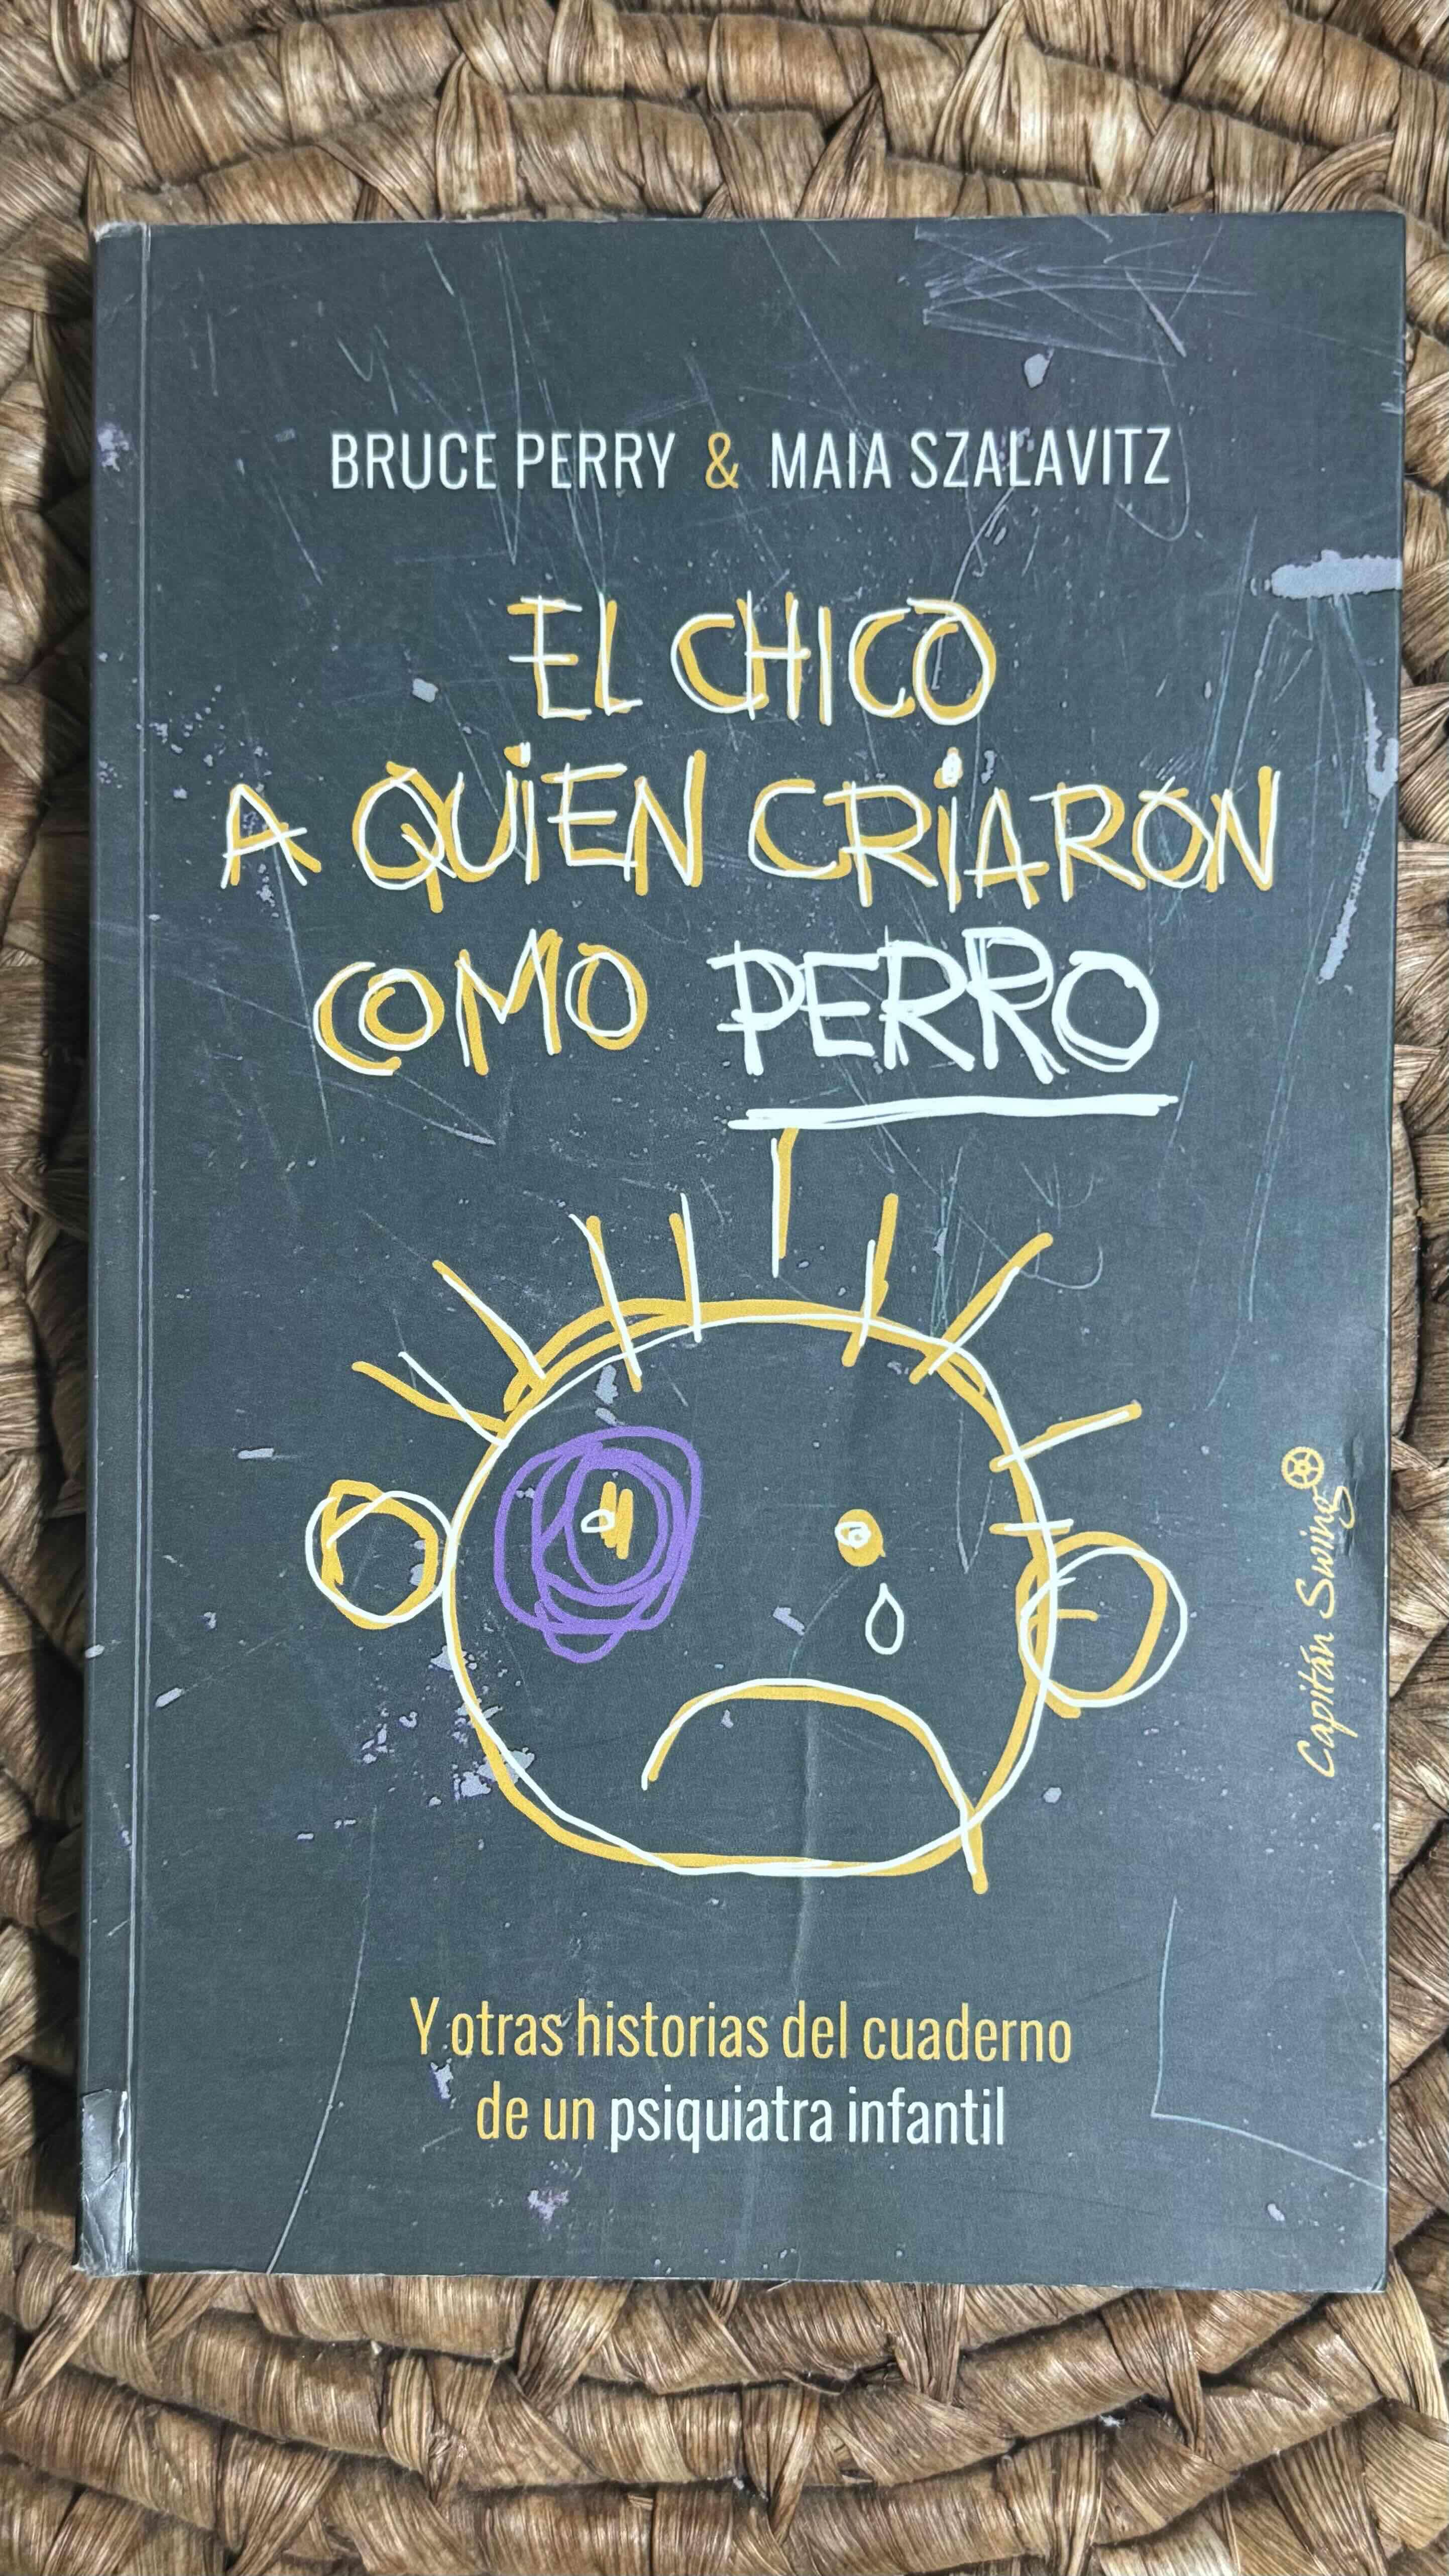 BRUCE PERRY & MAIA SZALAVITZ
EL CHICO
A QUIEN CRIARON
COMO PERRO
Capitán Swing
Y otras historias del cuaderno
de un psiquiatra infantil